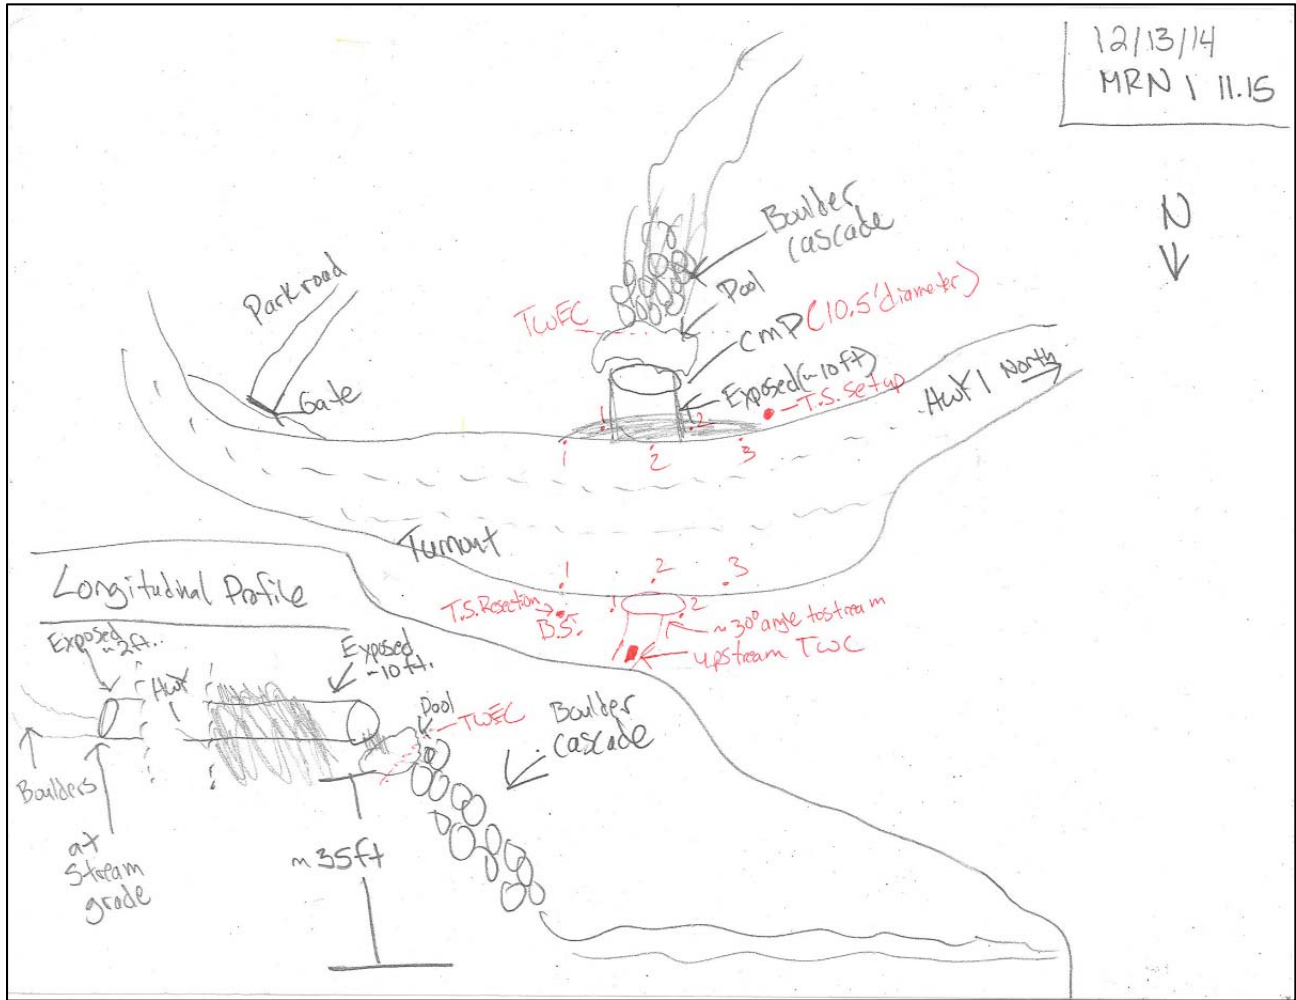 12/13/14
MRN 1 11.15
N
Boulder
cascade
Pool
CMP (10.5' diameter)
TWEC
Exposed (~10ft)
T.S. setup
HWY 1 North
Park road
Gate
1
2
1
2
3
Turnout
1
2
3
1
2
T.S. Resection
B.S.
~30° angle to stream
upstream TWC
Longitudinal Profile
Exposed
~2ft.
HWY
1
Exposed
~10ft.
Pool
TWEC
Boulder
cascade
Boulders
at
stream
grade
~35ft